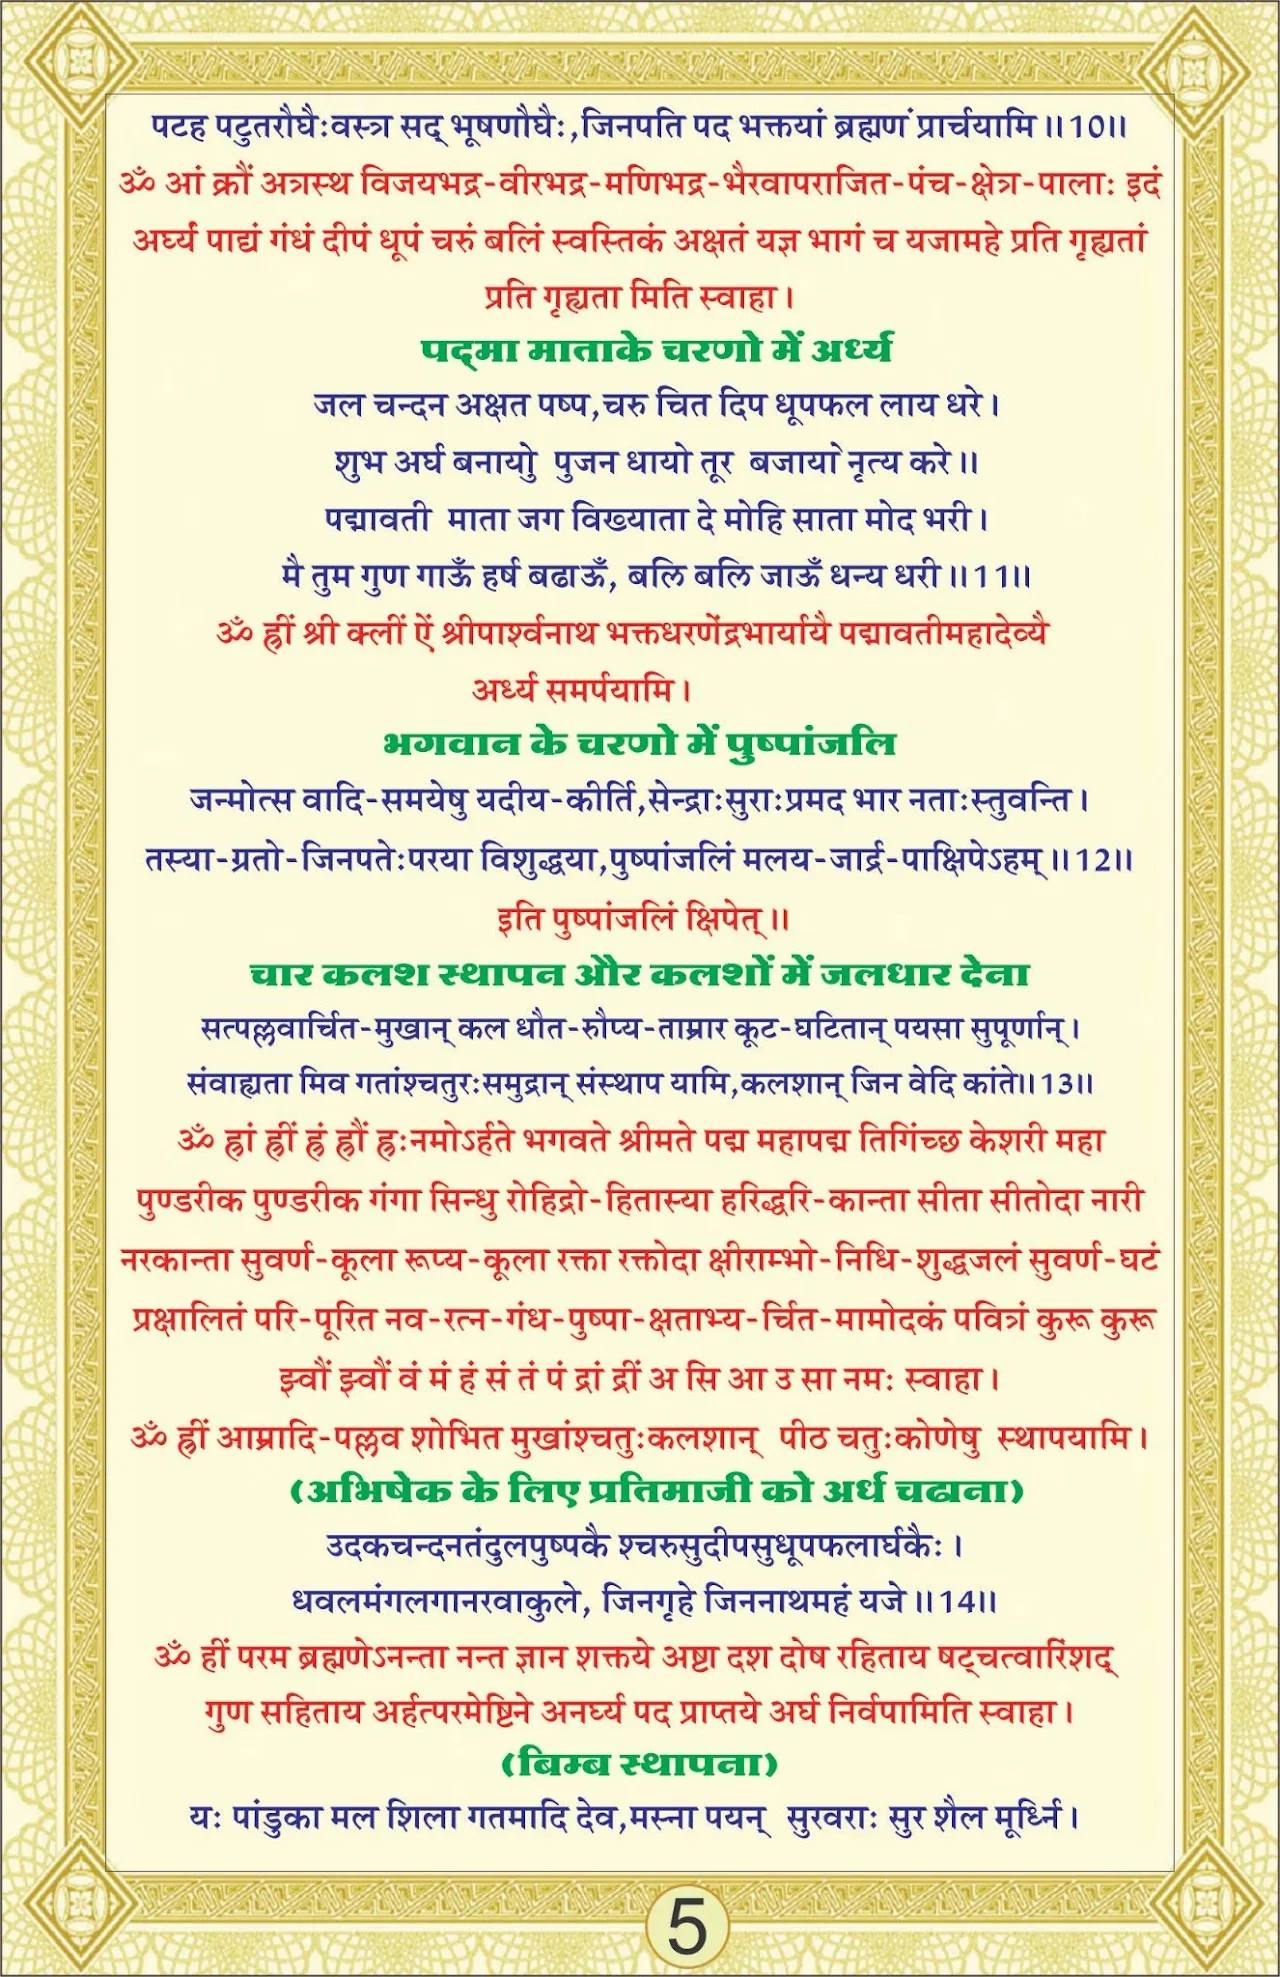 पटह पटुतरौघैःवस्त्रा सद् भूषणौघैः,जिनपति पद भक्तयां ब्रह्मणं प्रार्चयामि॥10॥
ॐ आं क्रौं अत्रस्थ विजयभद्र-वीरभद्र-मणिभद्र-भैरवापराजित-पंच-क्षेत्र-पालाः इदं
अर्घ्यं पाद्यं गंधं दीपं धूपं चरुं बलिं स्वस्तिकं अक्षतं यज्ञ भागं च यजामहे प्रति गृह्यतां
प्रति गृह्यता मिति स्वाहा।
पद्मा माताके चरणो में अर्ध्य
जल चन्दन अक्षत पष्प,चरु चित दिप धूपफल लाय धरे।
शुभ अर्घ बनायो पुजन धायो तूर बजायो नृत्य करे॥
पद्मावती माता जग विख्याता दे मोहि साता मोद भरी।
मै तुम गुण गाऊँ हर्ष बढाऊँ, बलि बलि जाऊँ धन्य धरी॥11॥
ॐ ह्रीं श्री क्लीं ऐं श्रीपार्श्वनाथ भक्तधरणेंद्रभार्यायै पद्मावतीमहादेव्यै
अर्ध्य समर्पयामि।
भगवान के चरणो में पुष्पांजलि
जन्मोत्स वादि-समयेषु यदीय-कीर्ति,सेन्द्राःसुराःप्रमद भार नताःस्तुवन्ति।
तस्या-ग्रतो-जिनपतेःपरया विशुद्धया,पुष्पांजलिं मलय-जार्द्र-पाक्षिपेऽहम्॥12॥
इति पुष्पांजलिं क्षिपेत्॥
चार कलश स्थापन और कलशों में जलधार देना
सत्पल्लवार्चित-मुखान् कल धौत-रुौप्य-ताम्रार कूट-घटितान् पयसा सुपूर्णान्।
संवाह्यता मिव गतांश्चतुरःसमुद्रान् संस्थाप यामि,कलशान् जिन वेदि कांते॥13॥
ॐ ह्रां ह्रीं ह्रं ह्रौं ह्रःनमोऽर्हते भगवते श्रीमते पद्म महापद्म तिगिंच्छ केशरी महा
पुण्डरीक पुण्डरीक गंगा सिन्धु रोहिद्रो-हितास्या हरिद्धरि-कान्ता सीता सीतोदा नारी
नरकान्ता सुवर्ण-कूला रूप्य-कूला रक्ता रक्तोदा क्षीराम्भो-निधि-शुद्धजलं सुवर्ण-घटं
प्रक्षालितं परि-पूरित नव-रत्न-गंध-पुष्पा-क्षताभ्य-र्चित-मामोदकं पवित्रं कुरू कुरू
झ्वौं झ्वौं वं मं हं सं तं पं द्रां द्रीं अ सि आ उ सा नमः स्वाहा।
ॐ ह्रीं आम्रादि-पल्लव शोभित मुखांश्चतुःकलशान् पीठ चतुःकोणेषु स्थापयामि।
(अभिषेक के लिए प्रतिमाजी को अर्ध चढाना)
उदकचन्दनतंदुलपुष्पकै श्चरुसुदीपसुधूपफलार्घकैः।
धवलमंगलगानरवाकुले, जिनगृहे जिननाथमहं यजे॥14॥
ॐ हीं परम ब्रह्मणेऽनन्ता नन्त ज्ञान शक्तये अष्टा दश दोष रहिताय षट्चत्वारिंशद्
गुण सहिताय अर्हत्परमेष्टिने अनर्घ्य पद प्राप्तये अर्घ निर्वपामिति स्वाहा।
(बिम्ब स्थापना)
यः पांडुका मल शिला गतमादि देव,मस्ना पयन् सुरवराः सुर शैल मूर्ध्नि।
5